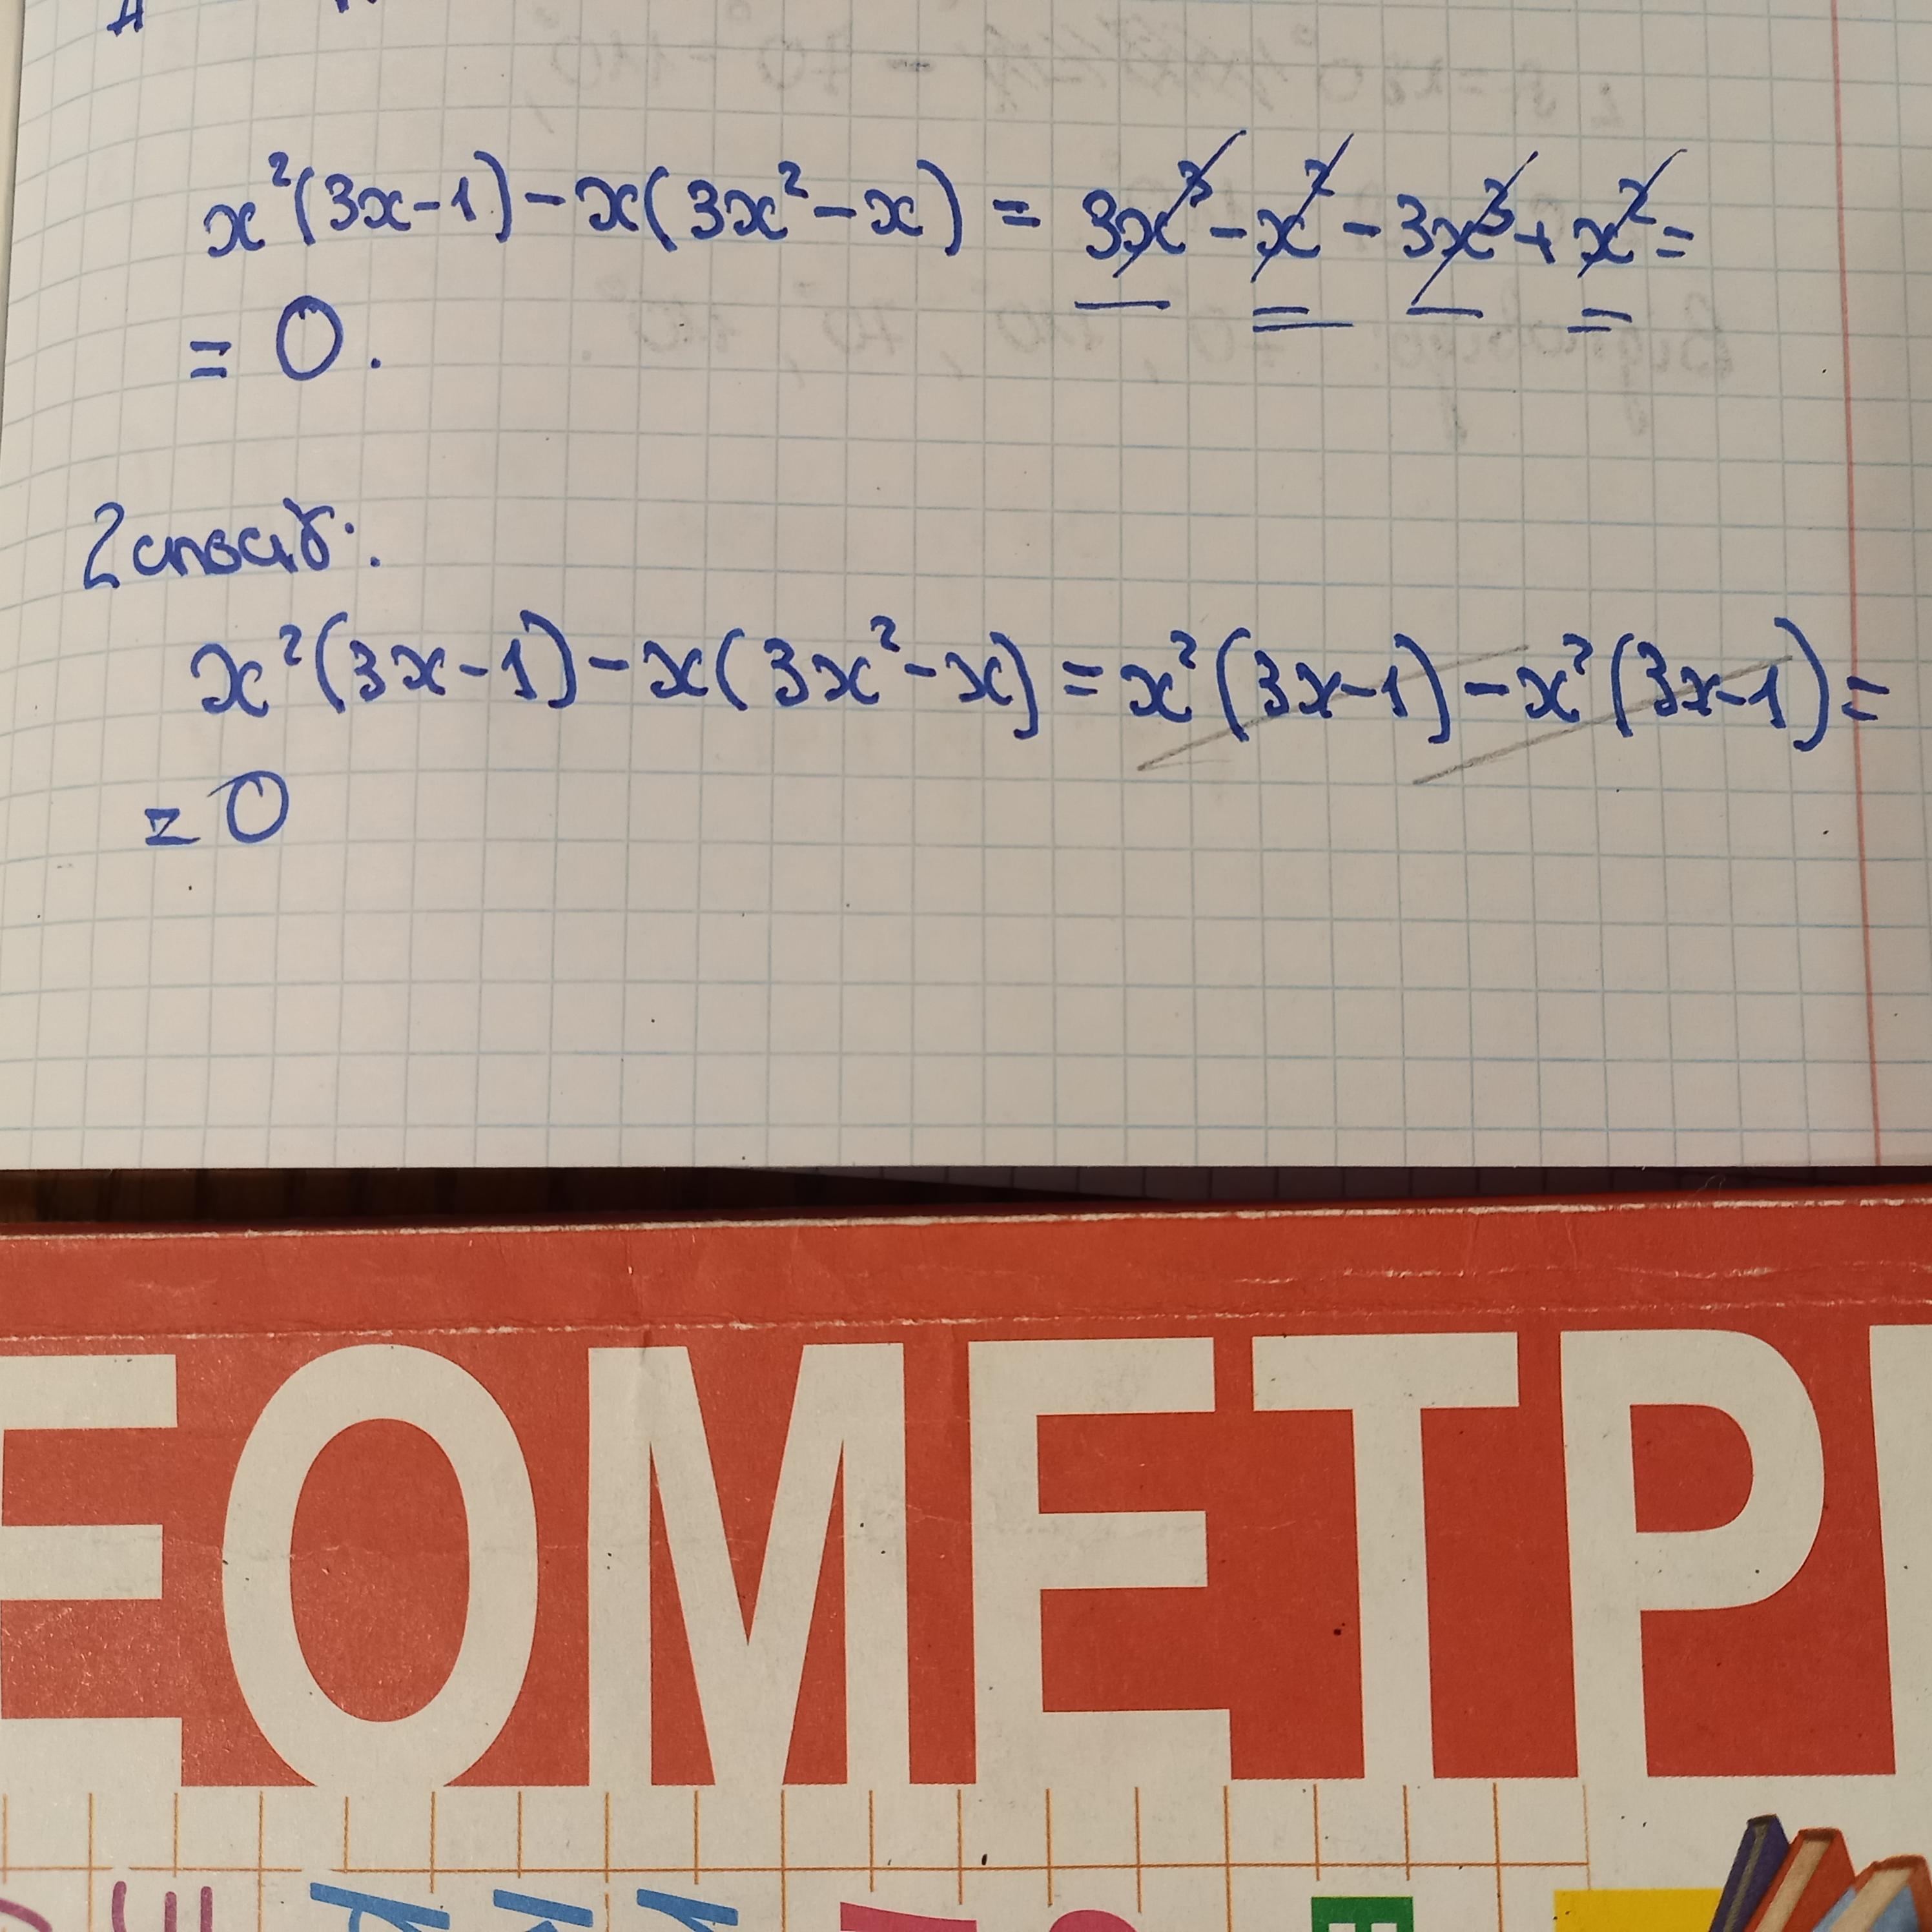 x²(3x-1)-x(3x²-x) = 3x³-x²-3x³+x²=
= 0.
2 спосіб:
x²(3x-1)-x(3x²-x)=x²(3x-1)-x²(3x-1)=
=0
ЕОМЕТР